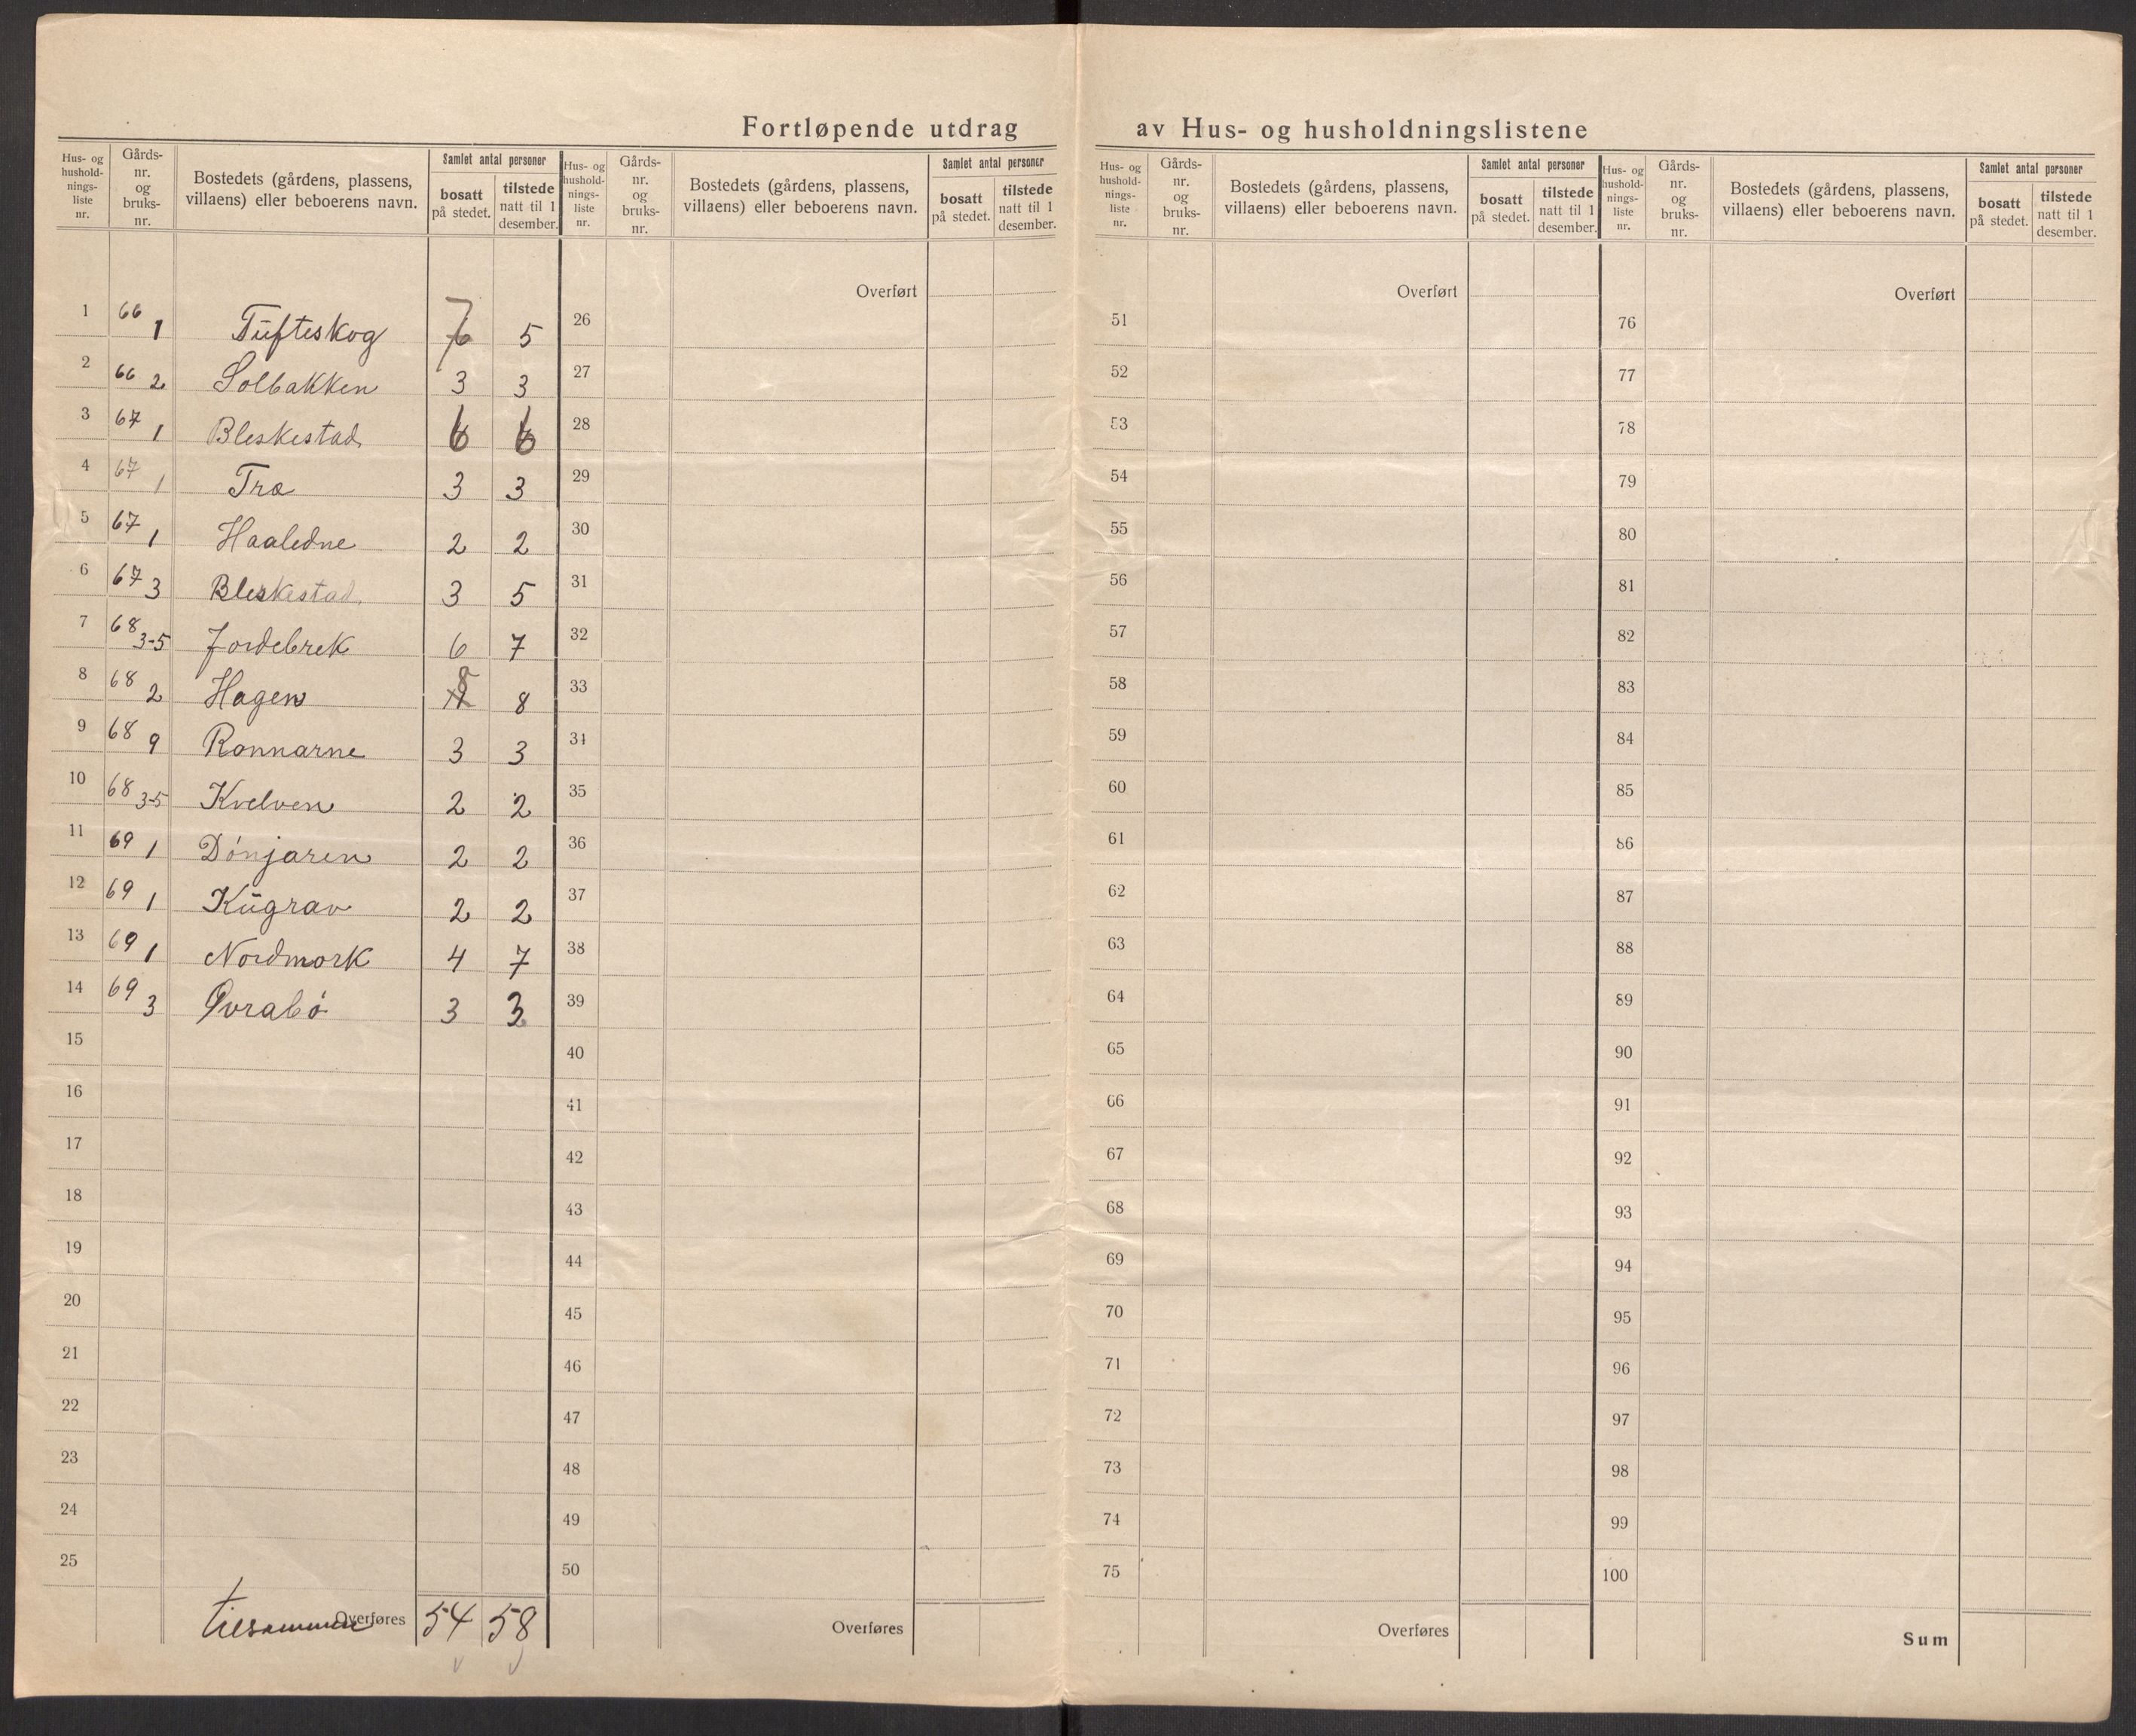 Fortløpende utdrag av Hus- og husholdningslistene
Hus- og hushold-nings-liste nr. Gårds-nr. og bruks-nr. Bostedets (gårdens, plassens, villaens) eller beboerens navn. Samlet antal personer bosatt på stedet. tilstede natt til 1 desember.
1 66 1 Tufteskog 7 6 5
2 66 2 Solbakken 3 3
3 67 1 Bleskestad 6 6
4 67 1 Træ 3 3
5 67 1 Haaledne 2 2
6 67 3 Bleskestad 3 5
7 68 3-5 Jordebrek 6 7
8 68 2 Hagen 8 8
9 68 9 Ronnarne 3 3
10 68 3-5 Kvelven 2 2
11 69 1 Dónjaren 2 2
12 69 1 Kūgrav 2 2
13 69 1 Nordmork 4 7
14 69 3 Øvrabó 3 3
15
16
17
18
19
20
21
22
23
24
25
tilsammen Overføres 54 58
Hus- og hushold-nings-liste nr. Gårds-nr. og bruks-nr. Bostedets (gårdens, plassens, villaens) eller beboerens navn. Samlet antal personer bosatt på stedet. tilstede natt til 1 desember.
Overført
26
27
28
29
30
31
32
33
34
35
36
37
38
39
40
41
42
43
44
45
46
47
48
49
50
Overføres
Hus- og hushold-nings-liste nr. Gårds-nr. og bruks-nr. Bostedets (gårdens, plassens, villaens) eller beboerens navn. Samlet antal personer bosatt på stedet. tilstede natt til 1 desember.
Overført
51
52
53
54
55
56
57
58
59
60
61
62
63
64
65
66
67
68
69
70
71
72
73
74
75
Overføres
Hus- og hushold-nings-liste nr. Gårds-nr. og bruks-nr. Bostedets (gårdens, plassens, villaens) eller beboerens navn. Samlet antal personer bosatt på stedet. tilstede natt til 1 desember.
Overført
76
77
78
79
80
81
82
83
84
85
86
87
88
89
90
91
92
93
94
95
96
97
98
99
100
Sum